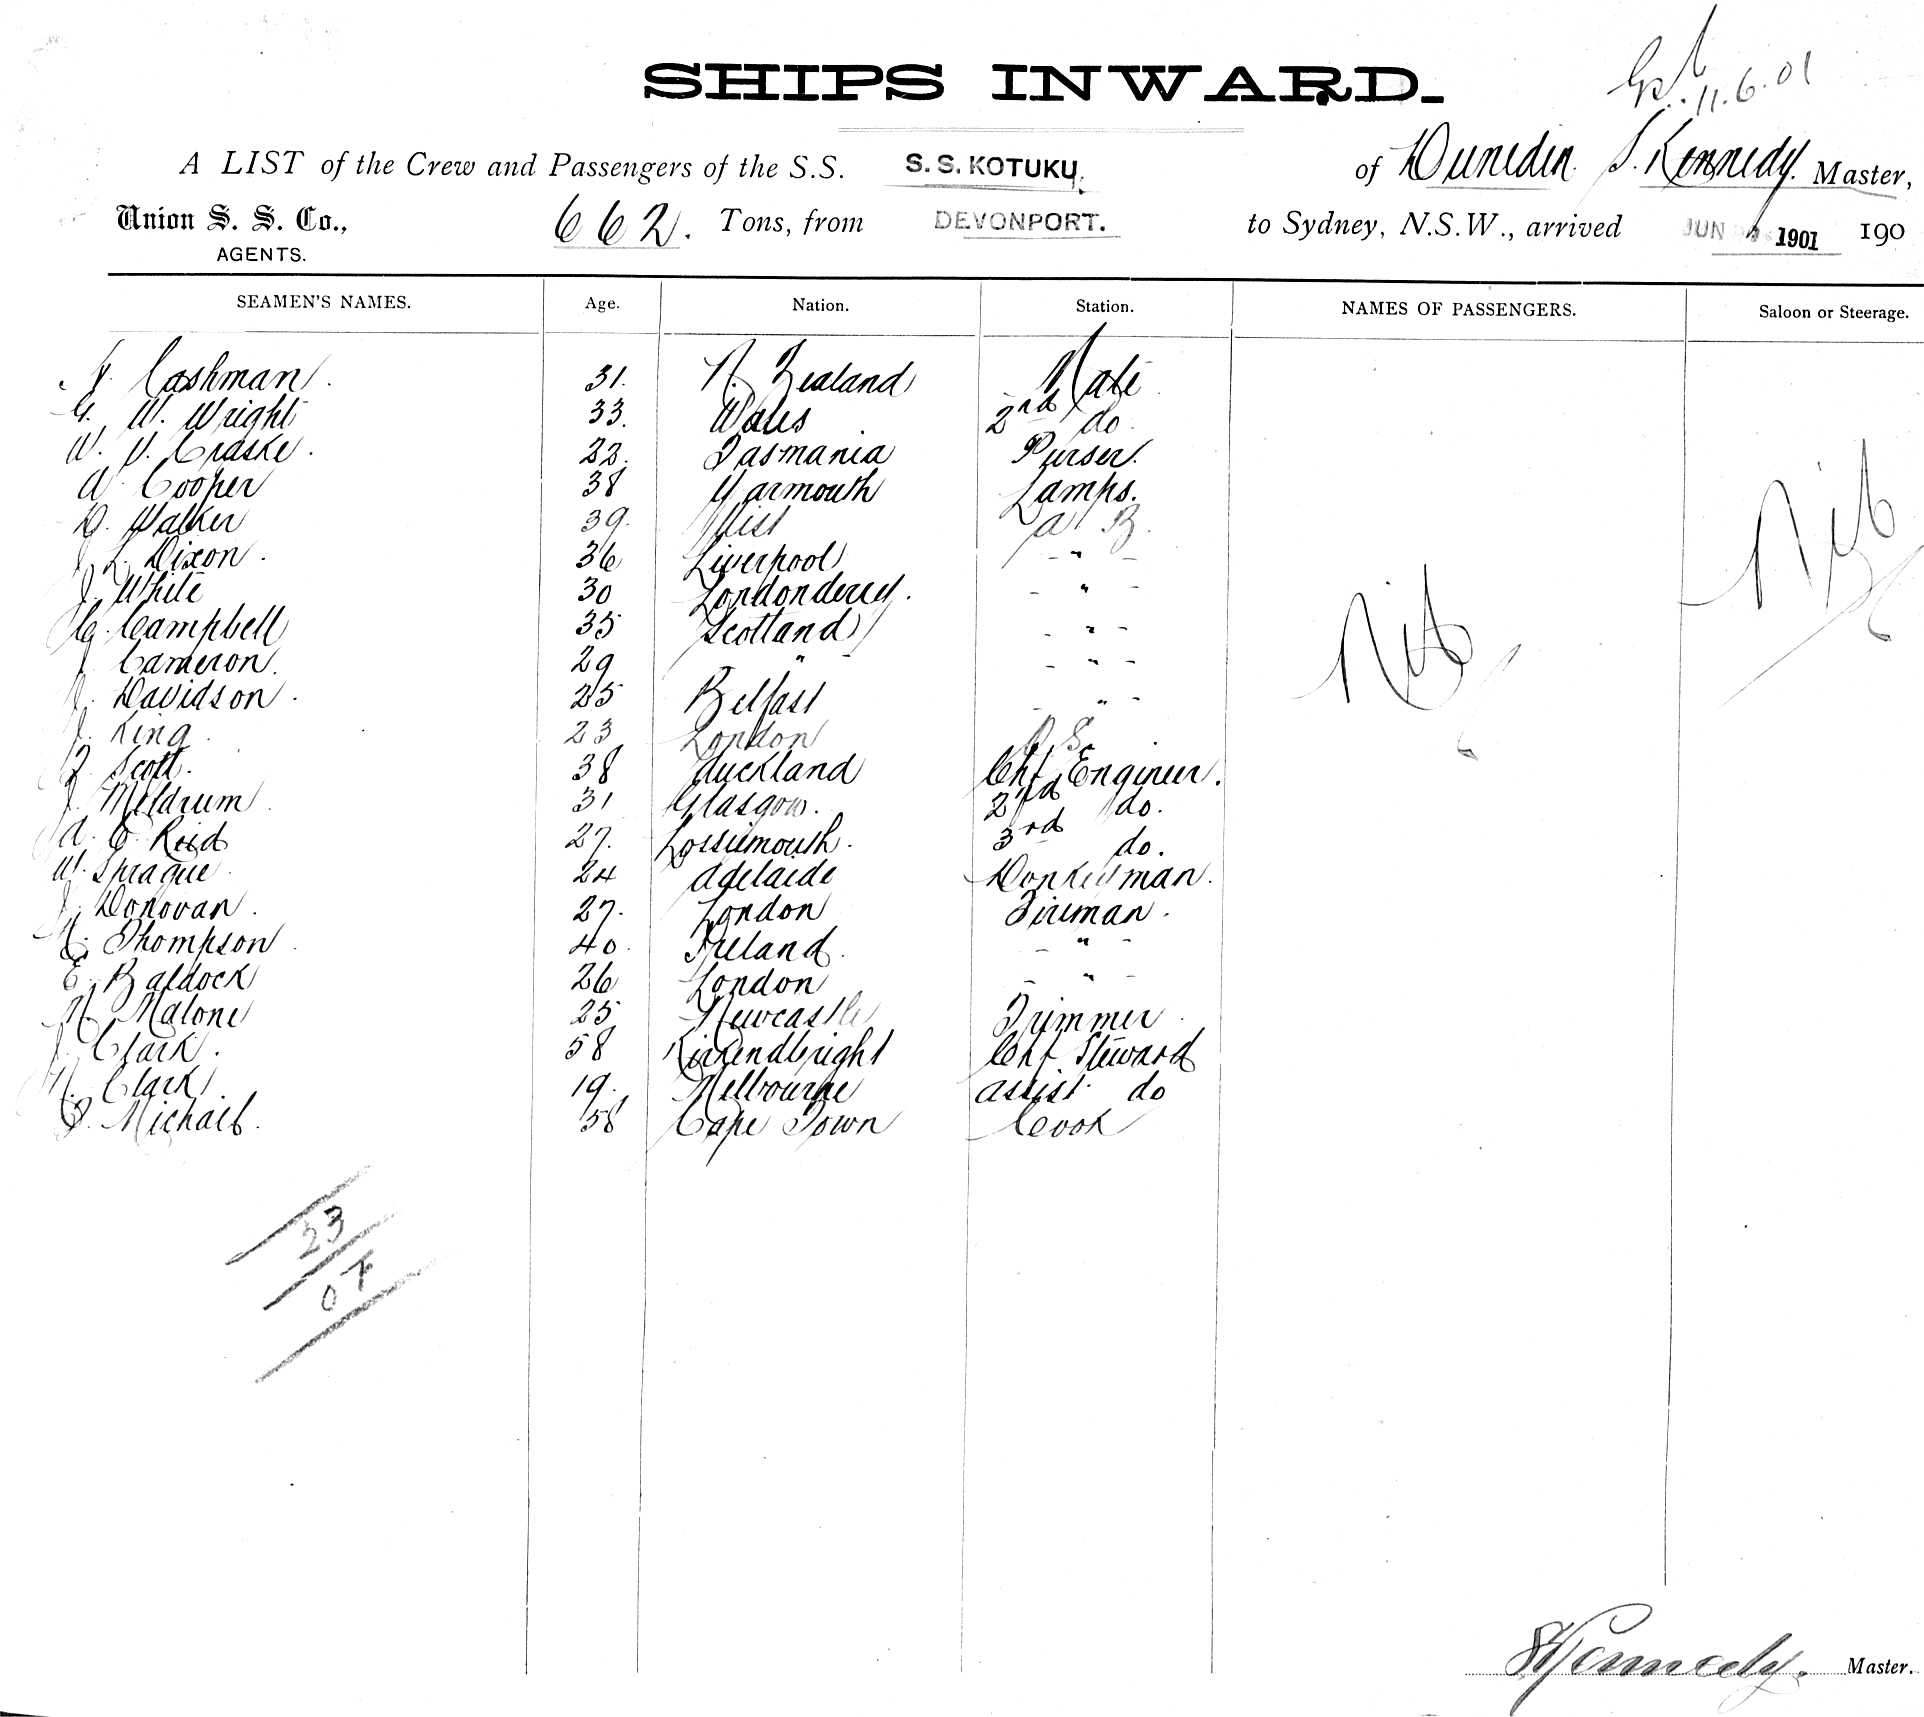 11.6.01
SHIPS INWARD.
A LIST of the Crew and Passengers of the S.S. S. S. KOTUKU. of Dunedin S. Kennedy. Master,
Union S. S. Co., 662. Tons, from DEVONPORT. to Sydney, N.S.W., arrived JUN 1901 190
AGENTS.
SEAMEN'S NAMES. Age. Nation. Station. NAMES OF PASSENGERS. Saloon or Steerage.
Cashman. 31. N. Zealand Mate
G. W. Wright 33. Wales 2nd do.
W. V. Craske. 22. Tasmania Purser.
A. Cooper 38 Yarmouth Lamps.
D. Walker 39. A B.
J. L. Dixon. 36 Liverpool - " -
J. White 30 Londonderry. - " -
Campbell 35 Scotland - " -
J. Cameron. 29 " - - " -
J. Davidson. 25 Belfast - " -
J. King. 23 London O S.
Scott. 38 Auckland Chf Engineer.
J. Meldrum. 31 Glasgow. 2nd do.
A. E. Reid 27. Lossiemouth. 3rd do.
W. Sprague. 24 Adelaide Donkeyman.
J. Donovan. 27. London Fireman.
Thompson. 40. Ireland. - " -
E. Baldock 26 London - " -
M. Malone 25 Newcastle Trimmer.
J. Clark. 58 Kirkendbright Chf Steward
Clark 19. Melbourne assist do
Michael. 58 Cape Town Cook
Nil
Nil
23
07
S Kennedy. Master.